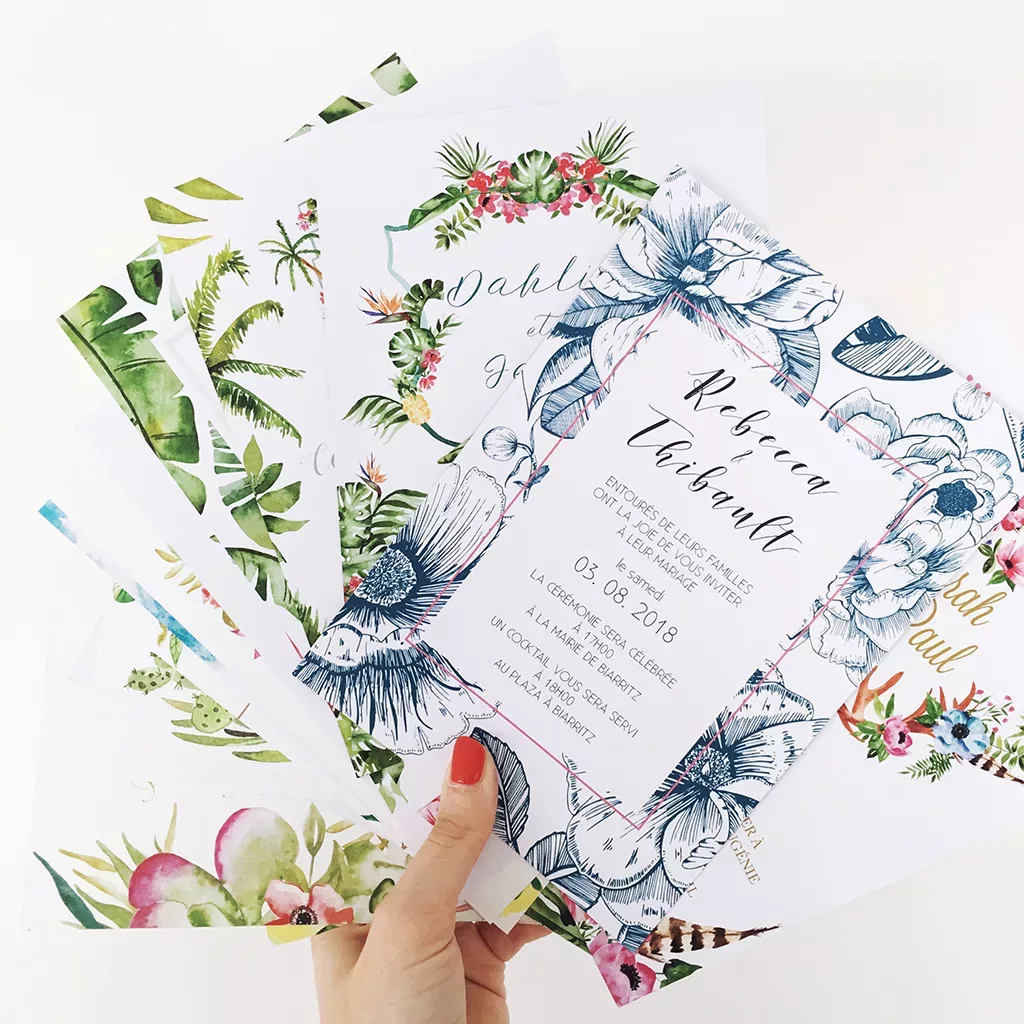 Rebecca
&
Thibault
ENTOURÉS DE LEURS FAMILLES
ONT LA JOIE DE VOUS INVITER
À LEUR MARIAGE
le samedi
03. 08. 2018
LA CÉRÉMONIE SERA CÉLÉBRÉE
À 17H00
À LA MAIRIE DE BIARRITZ
UN COCKTAIL VOUS SERA SERVI
AU PLAZA À BIARRITZ
Dahli
et
Ja
rah
Paul
ER À
GÉNIE